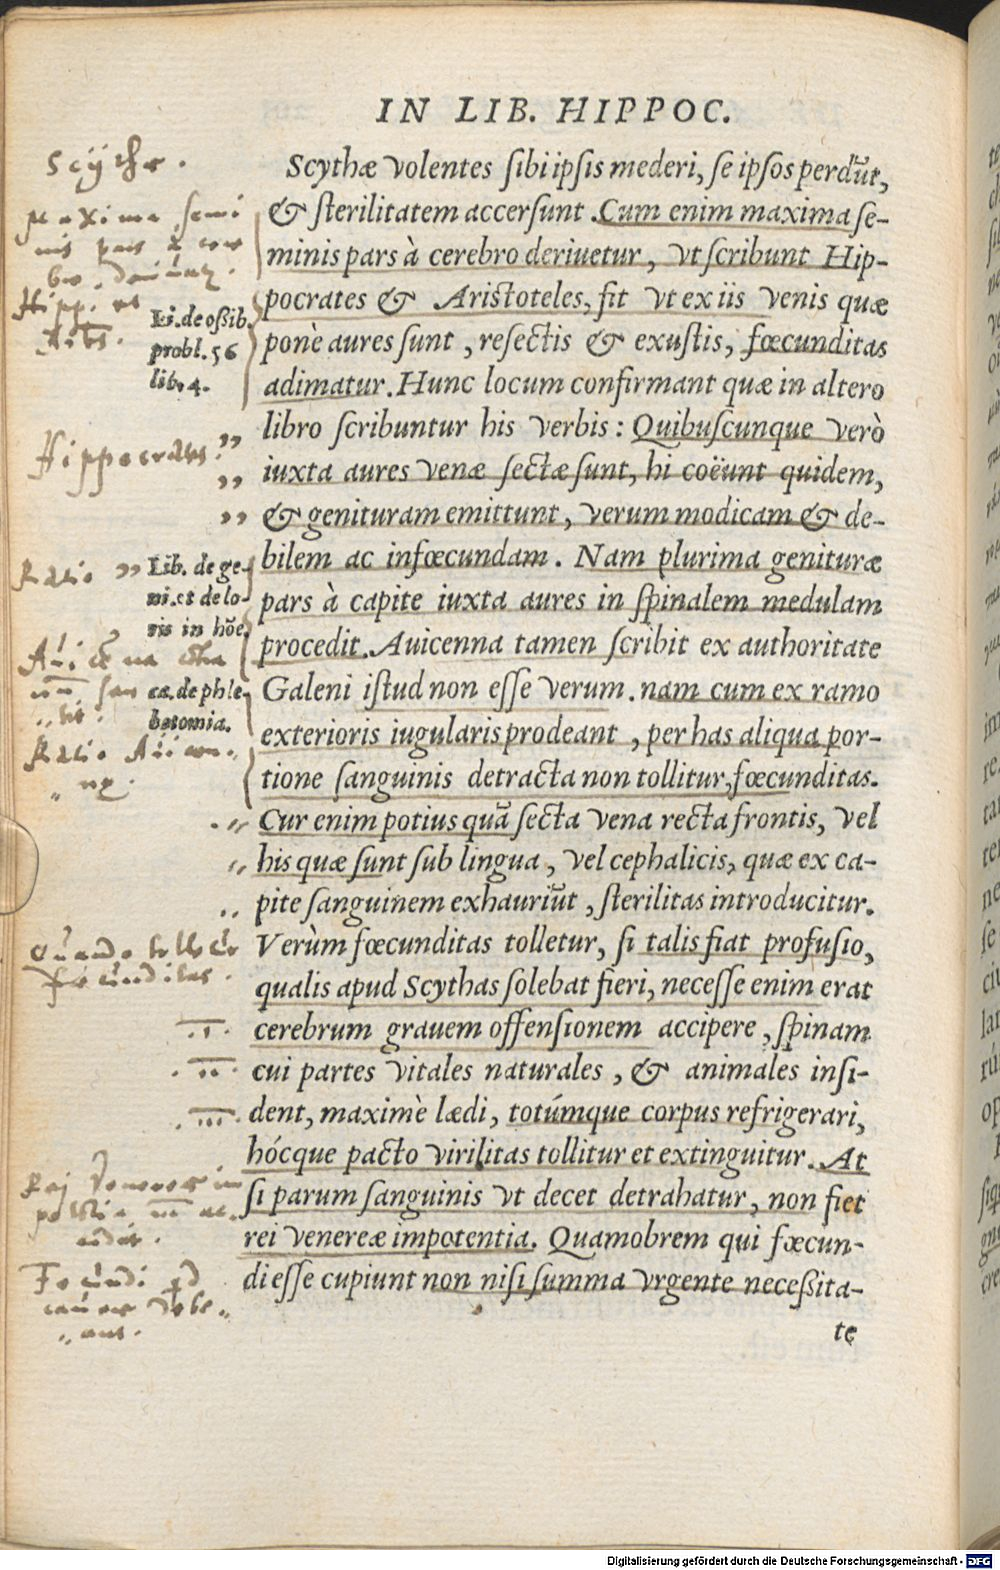 IN LIB. HIPPOC.
Scythæ volentes sibi ipsis mederi, se ipsos perdũt,
& sterilitatem accersunt. Cum enim maxima se-
minis pars à cerebro deriuetur, vt scribunt Hip-
pocrates & Aristoteles, fit vt ex iis venis quæ
ponè aures sunt, resectis & exustis, fœcunditas
adimatur. Hunc locum confirmant quæ in altero
libro scribuntur his verbis: Quibuscunque verò
iuxta aures venæ sectæ sunt, hi coëunt quidem,
& genituram emittunt, verum modicam & de-
bilem ac infœcundam. Nam plurima genituræ
pars à capite iuxta aures in spinalem medulam
procedit. Auicenna tamen scribit ex authoritate
Galeni istud non esse verum. nam cum ex ramo
exterioris iugularis prodeant, per has aliqua por-
tione sanguinis detracta non tollitur, fœcunditas.
Cur enim potius quã secta vena recta frontis, vel
his quæ sunt sub lingua, vel cephalicis, quæ ex ca-
pite sanguinem exhauriũt, sterilitas introducitur.
Verùm fœcunditas tolletur, si talis fiat profusio,
qualis apud Scythas solebat fieri, necesse enim erat
cerebrum grauem offensionem accipere, spinam
cui partes vitales naturales, & animales insi-
dent, maximè lædi, totúmque corpus refrigerari,
hócque pacto virilitas tollitur et extinguitur. At
si parum sanguinis vt decet detrahatur, non fiet
rei venereæ impotentia. Quamobrem qui fœcun-
di esse cupiunt non nisi summa vrgente necessita-
te
Scythæ.
Maxima semi
nis pars
Hipp. et
Li. de ossib.
probl. 56
lib. 4.
Hippocrates.
Ratio
Lib. de ge-
ni. et de lo-
ris in hõe.
Auicena
ca. de phle
botomia.
Ratio Auicen-
næ.
Quando tollitur
fœcunditas.
Rei Venereæ im
Fœcundi
Digitalisierung gefördert durch die Deutsche Forschungsgemeinschaft - DFG